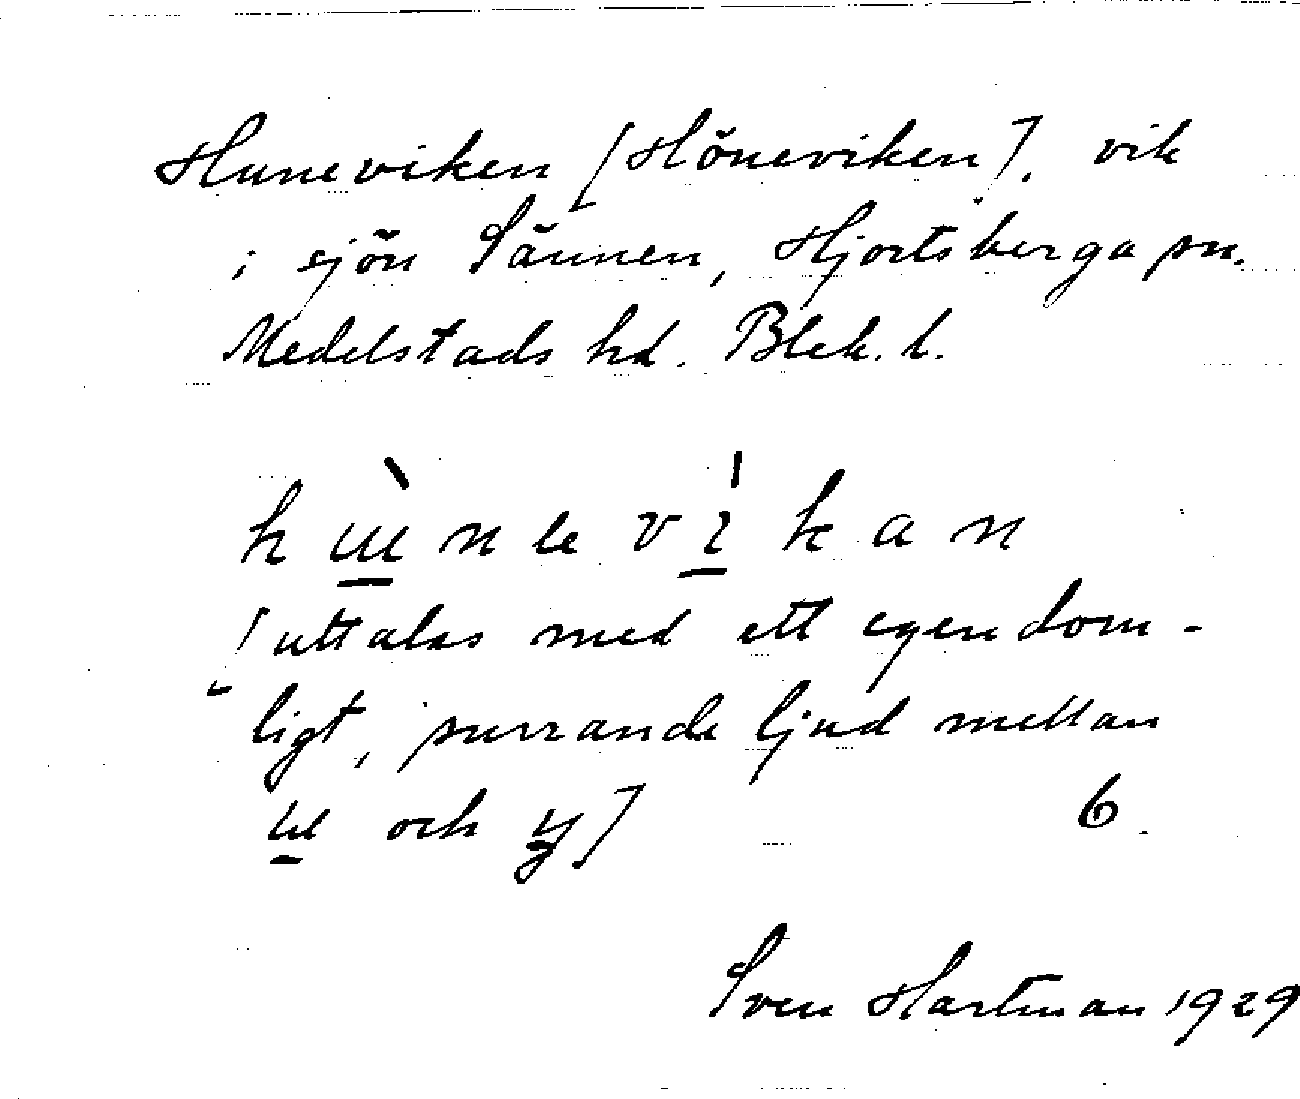 Huneviken [Höneviken]. vik
i sjön Sännen, Hjortsberga sn.
Medelstads hd. Blek. l.
h ɯ̀ n e v ı̍ k a n
[uttalas med ett egendom-
ligt, surrande ljud mellan
ɯ och y] 6.
Sven Hartman 1929